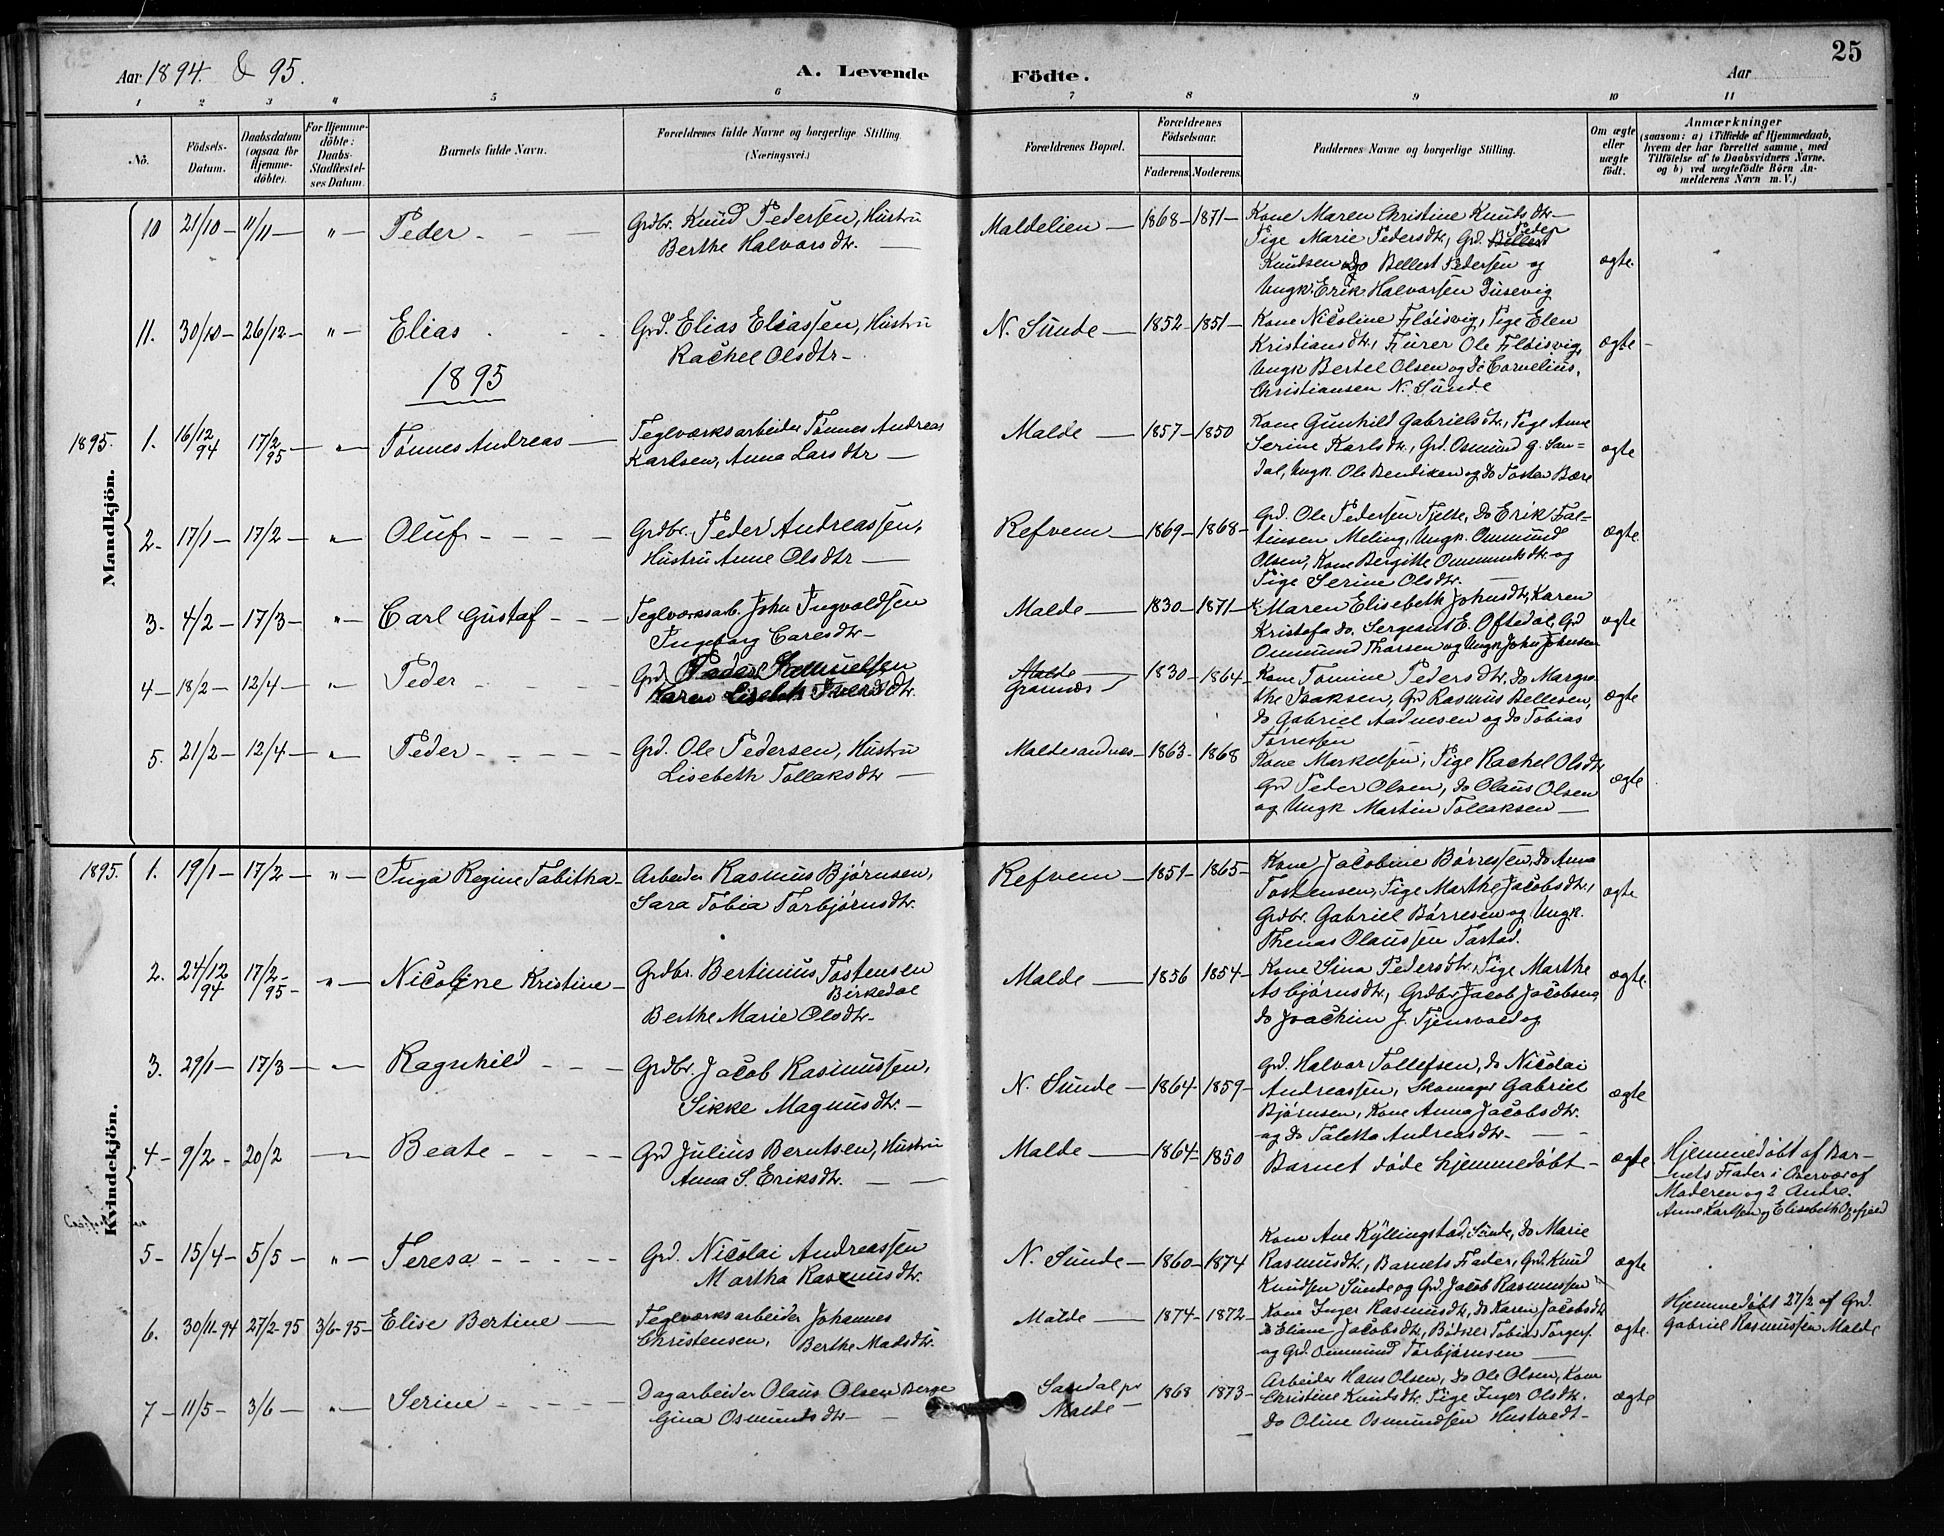 25
Aar 1894. & 95.
A. Levende Födte.
Aar
1 2 3 4 5 6 7 8 9 10 11
No.
Födsels-Datum.
Daabsdatum (ogsaa for Hjemme-döbte).
For Hjemme-döbte: Daabs-Stadfæstel-ses Datum.
Barnets fulde Navn.
Forældrenes fulde Navne og borgerlige Stilling.
(Næringsvei.)
Forældrenes Bopæl.
Forældrenes Födselsaar.
Faderens. Moderens.
Faddernes Navne og borgerlige Stilling.
Om ægte eller uægte födt.
Anmærkninger
(saasom: a) i Tilfælde af Hjemmedaab,
hvem der har forrettet samme, med
Tilföielse af to Daabsvidners Navne.
og b) ved uægtefödte Börn An-
melderens Navn m. V.)
Mandkjön.
10 21/10 — 11/11 — " — Peder — Grdbr. Knud Pedersen, Hustru
Berthe Halvorsdtr. —
Maldelien — 1868 — 1871 —
Kone Maren Christine Knudsdtr —
Pige Marie Pedersdtr, Grd. Peder
Knudsen do Bellest Pedersen og
Ungk. Erik Halvorsen Dusevig
ægte.
11. 30/10 — 26/12 — " — Elias — Grd. Elias Eliassen, Hustru
Rachel Olsdtr —
N. Sunde — 1852 — 1851 —
Kone Nicoline Fløisvig, Pige Elen
Kristiansdtr, Furer Ole Fløisvig,
Ungk Bertel Olsen og do Cornelius
Christiansen N. Sunde
ægte —
1895
1895. 1. 16/12 94 17/2 95 — " — Tønnes Andreas — Teglværksarbeider Tønnes Andreas
Karlsen, Anna Larsdtr —
Malde — 1857 — 1850
Kone Gunhild Gabrielsdtr, Pige Anne
Serine Karlsdtr, Grd. Osmund G. San-
dal, Ungk. Ole Bendiksen og do Tosten Bære
ægte
2. 17/1 — 17/2 — " — Oluf — Grdbr. Peder Andreassen,
Hustru Anne Olsdtr —
Refvem — 1869 — 1868 —
Grd. Ole Pedersen Tjelte, do Erik Fal-
tinsen Meling, Ungk. Ommund
Olsen, Kone Bergitte Ommundsdtr og
Pige Serine Olsdtr. —
ægte
3. 4/2 — 17/3 — " — Carl Gustaf — Teglværksarb. John Ingvaldsen
Ingeborg Carlsdtr —
Malde — 1830 — 1871 —
K. Maren Elisebeth Johnsdtr, Karen
Kristofa do. Sergeant E. Oftedal, Grd
Ommund Thorsen og Ungk John Johnsen
ægte
4 — 18/2 — 12/4 — " — Peder — Grd. Peder Samuelsen
Karen Lisebeth Iversdtr.
Malde
Grannes — 1830 — 1864 —
Kone Tomine Pedersdtr, do Margre
the Isaksen, Grd Rasmus Bellesen,
do Gabriel Aadnesen og do Tobias
Tørressen
ægte
5. 21/2 — 12/4 — " — Peder — Grd. Ole Pedersen, Hustru
Lisebeth Tollaksdtr —
Maldesandnes — 1863 — 1868
Kone Markussen, Pige Rachel Olsdtr
Grd Peder Olsen, do Claus Olsen
og Ungk Martin Tollaksen —
ægte
Kvindekjön.
1895. 1. 19/1 — 17/2 — " — Inga Regine Tabitha — Arbeider Rasmus Bjørnsen,
Sara Tobia Torbjørnsdtr.
Refvem — 1851 — 1865 —
Kone Jacobine Børressen, do Anna
Tostensen, Pige Marthe Jacobsdtr,
Grdbr. Gabriel Børresen og Ungk.
Thenas Olaussen Tastad.
ægte
2. 24/12 94 17/2 95 — " — Nicoline Kristine — Grdbr. Bertinius Tostensen
Birkedal
Berthe Marie Olsdtr —
Malde — 1856 1854 —
Kone Sina Pedersdtr, Pige Marthe
Asbjørnsdtr, Grdbr Jacob Jacobsen
do Joachim J. Tjensvold og
ægte.
3. 29/1 — 17/3 — " — Ragnhild — Grdbr. Jacob Rasmussen,
Sikke Magnusdtr. —
N. Sunde — 1864 — 1859 —
Grd. Halvor Tollefsen, do Nicolai
Andreassen, Skomager Gabriel
Bjørnsen, Kone Anna Jacobsdtr.
og do Taletta Andreasdtr. —
ægte
4 — 9/2 — 20/2 — Beate — Grd Julius Berntsen, Hustru
Anna S. Eriksdtr. —
Malde — 1864 — 1850
Barnet døde hjemmedøbt —
ægte
Hjemmedøbt af Bar-
nets Fader i Overvær af
Moderen og 2 Andre.
Anne Karlsen og Elisebeth
5 — 15/4 — 5/5 — " — Teresa — Grd. Nicolai Andreassen
Martha Rasmusdtr.
N. Sunde — 1860 — 1874
Kone Ane Kyllingstad, Sunde, do Marie
Rasmusdtr, Barnets Fader, Grd. Knud
Knudsen Sunde og Grd. Jacob Rasmussen
ægte
6. 30/11-94 27/2-95 3/6-95 — Elise Bertine — Teglværksarbeider Johannes
Christensen, Berthe Madsdtr.
Malde — 1874 — 1872 —
Kone Inger Rasmusdtr, do Karen Jacobsdtr
do Eliane Jacobsdtr, Bødker Tobias Torgers.
og Grd. Ommund Torbjørnsen —
ægte.
Hjemmedøbt 27/2 af Grd.
Gabriel Rasmussen Malde
7 — 11/5 — 3/6 — " — Serine — Dagarbeider Olaus Olsen Berge
Gina Osmundsdtr —
Sandal pr
Malde — 1868 1873 —
Arbeider Hans Olsen, do Ole Olsen, Kone
Christine Knudsdtr. Pige Inger Olsdtr.
do Oline Osmundsen Hustvedt —
ægte